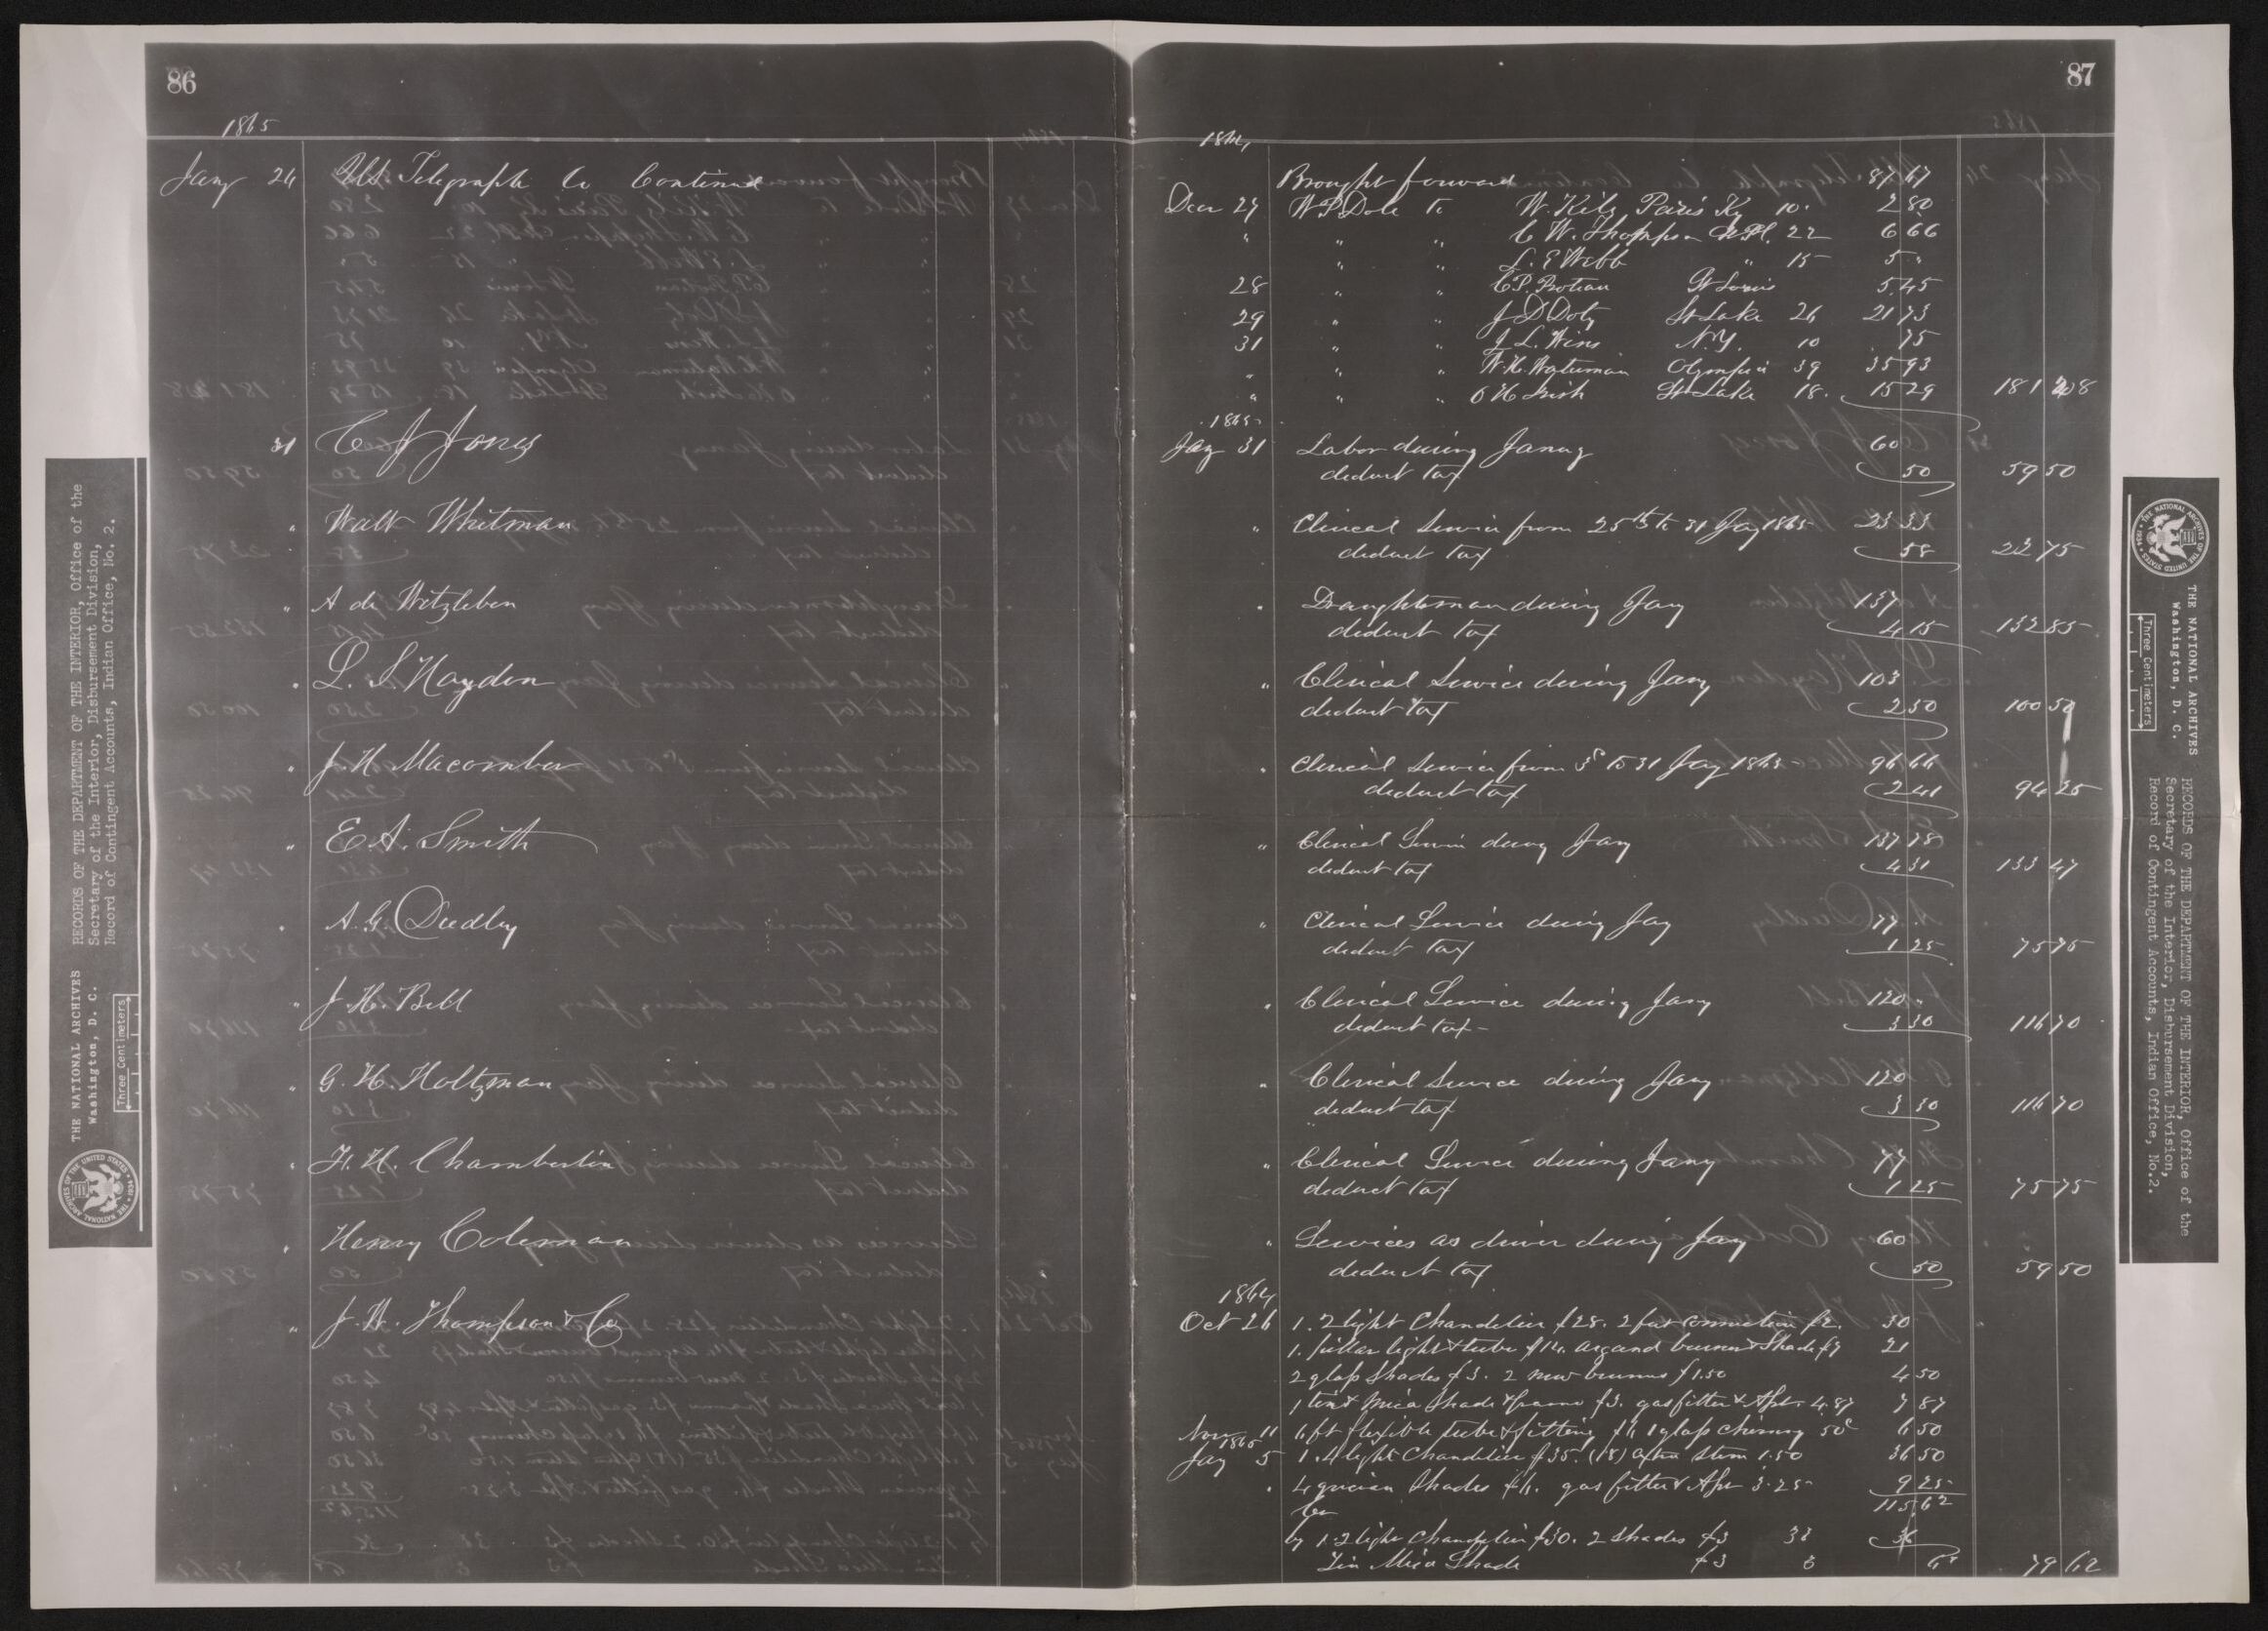 86
1865
Jany 24 U.S. Telegraph Co Continued
31 C J Jones
" Walt Whitman
" A de Witzleben
" L. S. Hayden
" J. H. Macomber
" E A. Smith
" A. G. Dudley
" J. H. Bell
" G. H. Holtzman
" H. H. Chamberlin
" Henry Coleman
" J. W. Thompson & Co
87
1864
Brought forward 87 67
Decr 27 W P Dole to W. Kile Paris Ky 10. 2 80
" " " C W. Thompson 22 6 66
" " L. E Webb " 15 5 "
28 " " St Louis 5.45
29 " " J D Doty St Lake 26 21 73
31 " " J L. N.Y. 10 75
" " " W. H. Waterman Olympia 39 35 93
" " " O H Irish St Lake 18. 15 29 181 28
1865
Jany 31 Labor during Janay 60
deduct tax 50 59 50
" Clerical Service from 25th to 31 Jay 1865 23 33
deduct tax 58 22 75
" Draughtsman during Jany 137
deduct tax 4 15 132 85
" Clerical Service during Jany 103
deduct tax 2 50 100 50
" Clerical Service from 3d to 31 Jay 1865 96 66
deduct tax 2 41 94 25
" Clerical Service during Jany 137 78
deduct tax 4 31 133 47
" Clerical Service during Jay 77
deduct tax 1 25 75 75
" Clerical Service during Jany 120 "
deduct tax - 3 30 116 70
" Clerical Service during Jany 120
deduct tax 3 30 116 70
" Clerical Service during Jany 77
deduct tax 1 25 75 75
" Services as driver during Jay 60
deduct tax 50 59 50
1864
Oct 26 1. 2 light Chandelier $28. 2 feet connection $2. 30
1. pillar light & tube $14. argand burner & Shade $7 21
2 glass shades $3. 2 new burners $1.50 4 50
1 tin & mica Shade & frame $3. gasfitter & Apr. 4.87 7 87
Nov 11 6 ft flexible tube & fitting $6 1 glass chimney 50c 6 50
1865
Jay 5 1. 4 light Chandelier $35. (18) extra stem 1.50 36 50
" 4 grecian Shades $6. gas fitter & Apr 3.25 9 25
115 62
Cr
by 1. 2 light Chandelier $30. 2 shades $3 33
Tin Mica Shade $3 3 79 62
THE NATIONAL ARCHIVES
Washington, D. C.
RECORDS OF THE DEPARTMENT OF THE INTERIOR, Office of the
Secretary of the Interior, Disbursement Division,
Record of Contingent Accounts, Indian Office, No. 2.
Three Centimeters
THE NATIONAL ARCHIVES OF THE UNITED STATES 1934
THE NATIONAL ARCHIVES
Washington, D. C.
RECORDS OF THE DEPARTMENT OF THE INTERIOR, Office of the
Secretary of the Interior, Disbursement Division,
Record of Contingent Accounts, Indian Office, No.2.
Three Centimeters
THE NATIONAL ARCHIVES OF THE UNITED STATES 1934